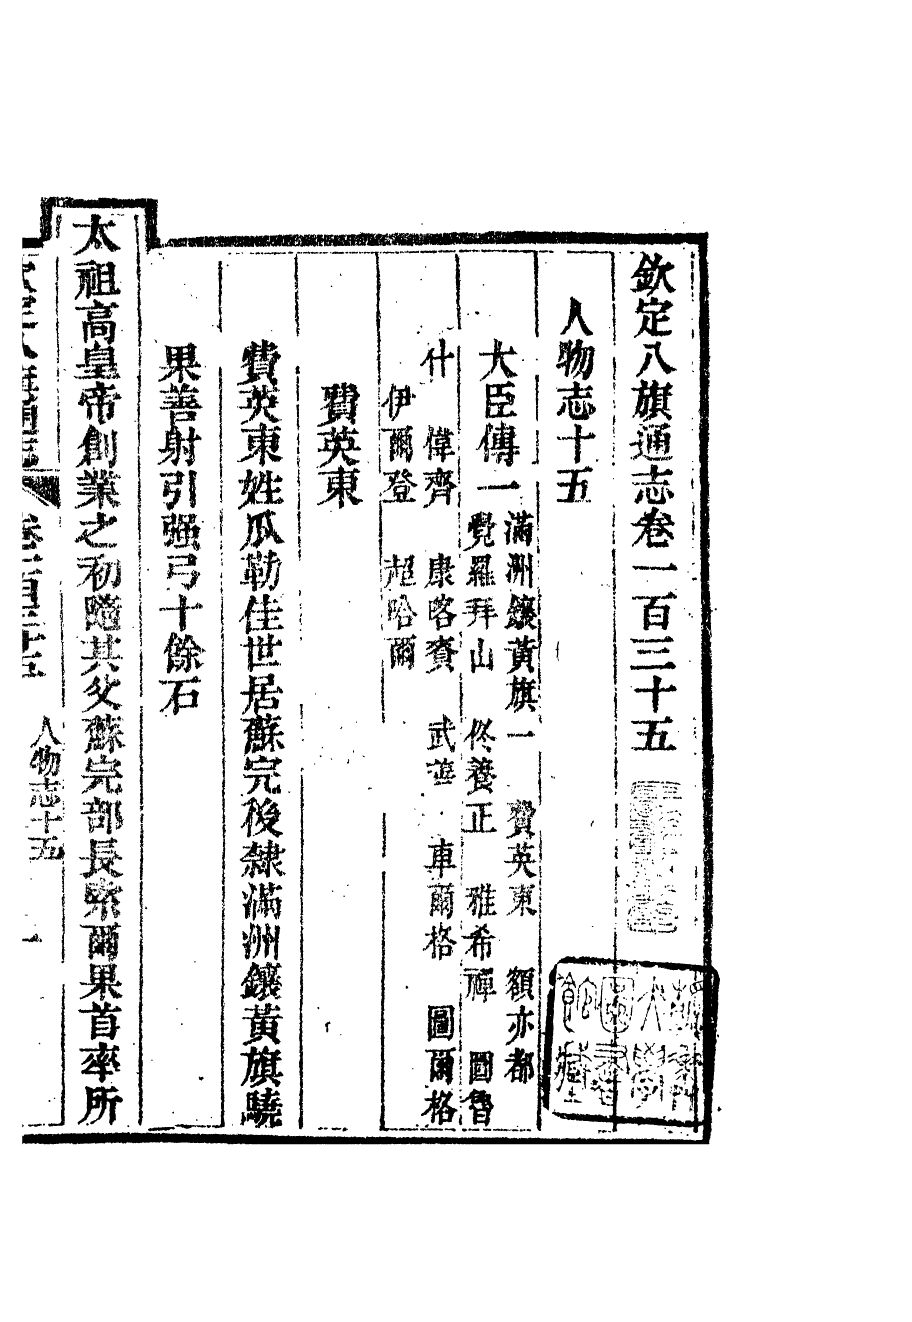 欽定八旗通志卷一百三十五
人物志十五
大臣傳一 滿洲鑲黃旗一 費英東 額亦都
覺羅拜山 佟養正 雅希禪 圖魯
什 偉齊 康喀賚 武 車爾格 圖爾格
伊爾登 超哈爾
費英東
費英東姓瓜勒佳世居蘇完後隸滿洲鑲黃旗驍
果善射引强弓十餘石
太祖高皇帝創業之初隨其父蘇完部長索爾果首率所
欽定八旗通志 卷一百三十五 人物志十五 一